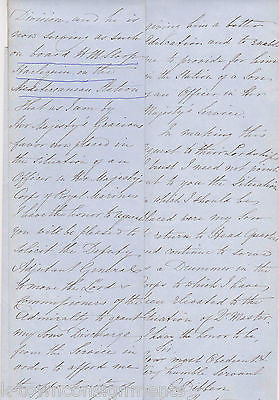 Division, and he is
now serving as such
on board H.M. Sloop
Harlequin on the
Mediterranean Station
That as I am by
Her Majesty's Gracious
favor now placed in
the situation of an
Officer in Her Majesty's
Corps of Royal Marines
I have the honor to request
you will be pleased to
solicit the Deputy
Adjutant General
to move the Lords
Commissioners of the
Admiralty to grant
my Sons Discharge
from the Service in
order to afford me
giving him a better
Education and to enable
me to provide for him
in the Station of a Son of
an Officer in Her
Majesty's Service.
In making this
request to their Lordships
I trust I need not point
out to you the Situation
which I should be
placed were my Son
to return to Head Quarters
and continue to serve
as a Drummer in the
Corps to which I have
been elevated to the
situation of Qr Master
I have the honor to be,
Your most Obedient &
Very humble Servant
k-townconsignments